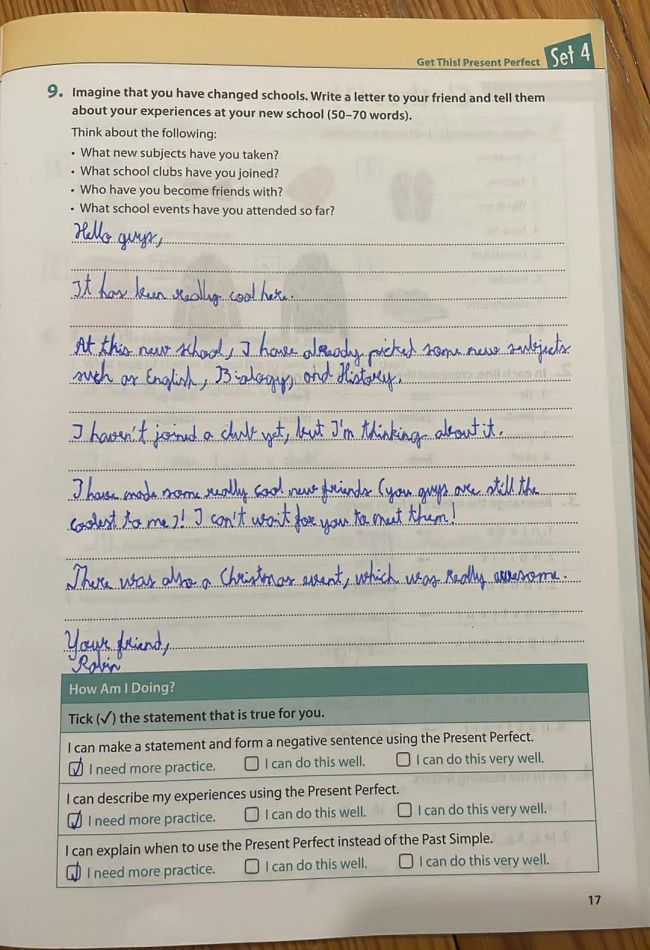 Get This! Present Perfect Set 4
9. Imagine that you have changed schools. Write a letter to your friend and tell them
about your experiences at your new school (50–70 words).
Think about the following:
• What new subjects have you taken?
• What school clubs have you joined?
• Who have you become friends with?
• What school events have you attended so far?
Hello guys,
It has been really cool here.
At this new school, I have already picked some new subjects
such as English, Biology, and History.
I haven't joined a club yet, but I'm thinking about it.
I have made some really cool new friends (you guys are still the
coolest to me)! I can't wait for you to meet them!
There was also a Christmas event, which was really awesome.
Your friend,
Robin
How Am I Doing?
Tick (✓) the statement that is true for you.
I can make a statement and form a negative sentence using the Present Perfect.
☑ I need more practice. ☐ I can do this well. ☐ I can do this very well.
I can describe my experiences using the Present Perfect.
☑ I need more practice. ☐ I can do this well. ☐ I can do this very well.
I can explain when to use the Present Perfect instead of the Past Simple.
☑ I need more practice. ☐ I can do this well. ☐ I can do this very well.
17